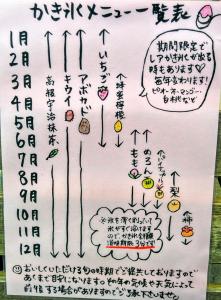 かき氷メニュー一覧表
1月
2月
3月
4月
5月
6月
7月
8月
9月
10月
11月
12月
高級宇治抹茶
キウイ
アボカド
いちご
蜂蜜檸檬
もも
めろん
パイナップル
梨
柿
期間限定で
しアかき氷が出る
時もあります♡
毎年変わります!
ピオーネ・マンゴー
※氷を薄く削って
氷がすぐ溶けます
のでかき氷到着
賞味期限
☺おいしくいただける旬の時期でご提供しておりますので
あくまで目安になります。その年の気候や天気によって
前後する場合がありますのでご了承下さいませ